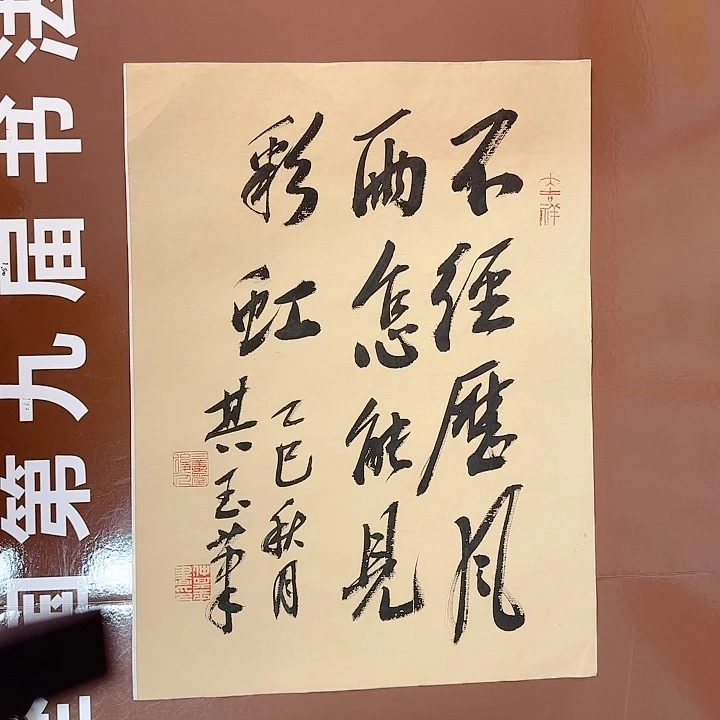 不經歷风
雨怎能見
彩虹
乙巳秋月
其玉
大吉祥
国第九届书法